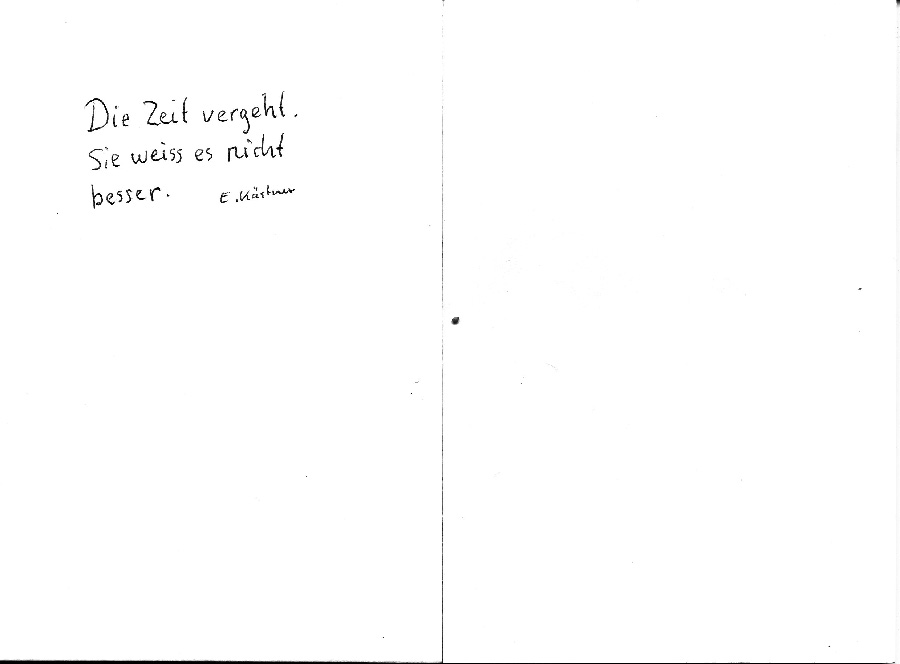 Die Zeit vergeht.
Sie weiss es nicht
besser. E. Kästner